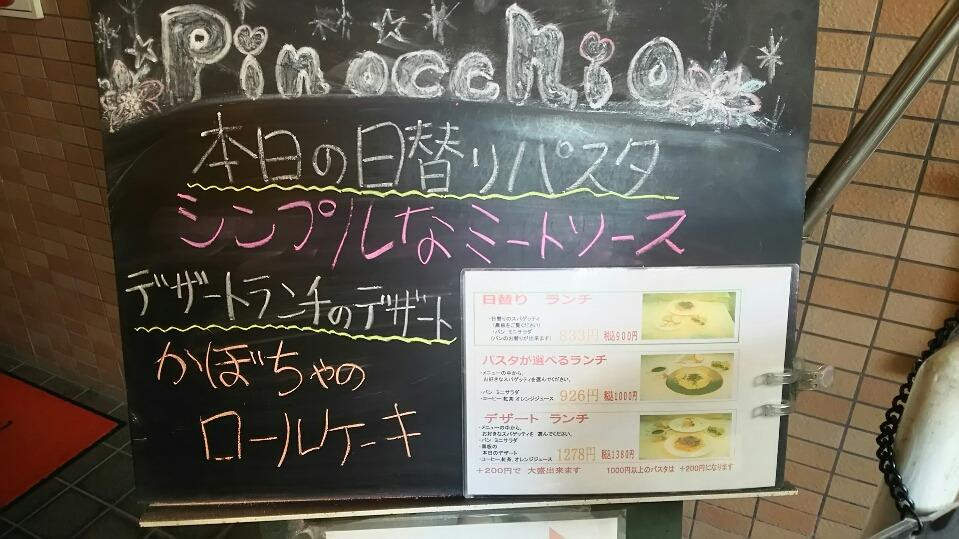 Pinocchio
本日の日替りパスタ
シンプルなミートソース
デザートランチのデザート
かぼちゃの
ロールケーキ
日替り ランチ
・日替りのスパゲッティ
(黒板をご覧ください)
・パン ミニサラダ
(パンのお替りが出来ます)
833円 税込900円
パスタが選べるランチ
・メニューの中から、
お好きなスパゲッティを選んでください。
・パン ミニサラダ
・コーヒー、紅茶、オレンジジュース
926円 税込1000円
デザート ランチ
・メニューの中から、
お好きなスパゲッティを 選んでください。
・パン ミニサラダ
・黒板の
本日のデザート
・コーヒー、紅茶、オレンジジュース
1278円 税込1380円
+200円で 大盛出来ます 1000円以上のパスタは +200円になります